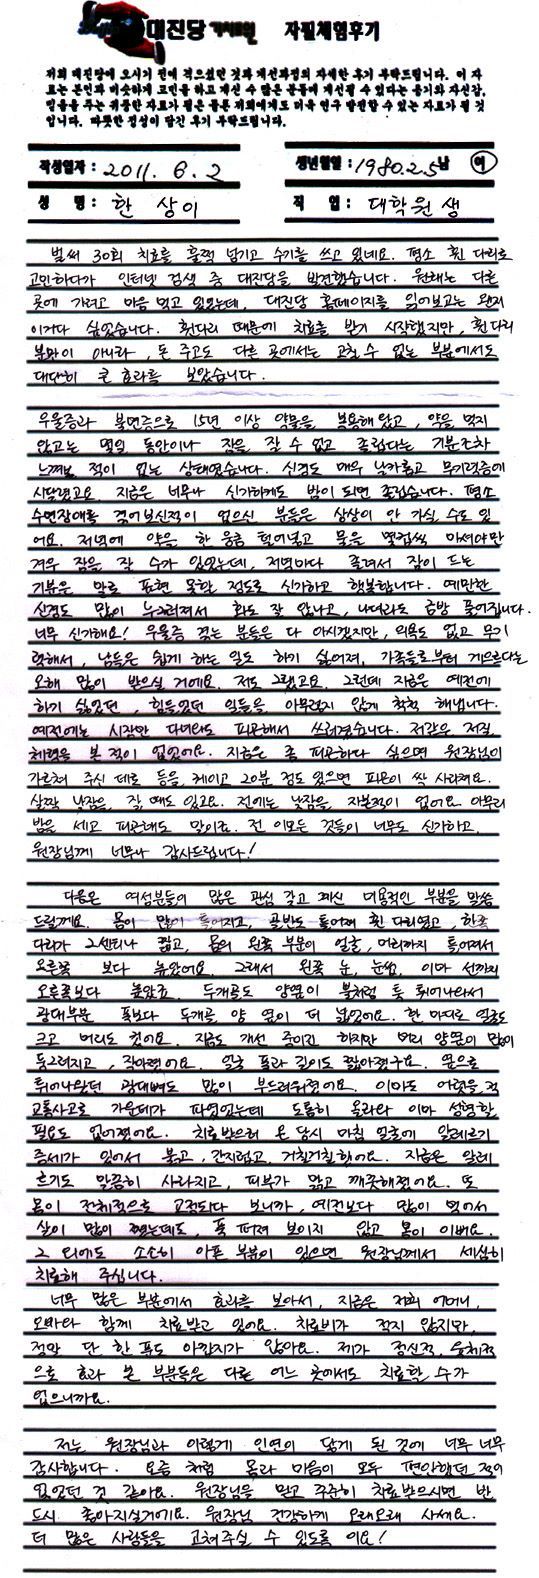 대진당 자필체험후기
저희 대진당에 오시기 전에 적으셨던 것과 개선과정의 자세한 후기 부탁드립니다. 이 자
료는 본인과 비슷하게 고민을 하고 계신 수 많은 분들에게 개선될 수 있다는 용기와 자신감,
믿음을 주는 귀중한 자료가 됨은 물론 저희에게도 더욱 연구 발전할 수 있는 자료가 될 것
입니다. 따뜻한 정성이 담긴 후기 부탁드립니다.
작성일자 : 2011. 6. 2 생년월일 : 1980.2.5 남 여
성 명 : 한 상이 직 업 : 대학원생
벌써 30회 치료를 훌쩍 넘기고 수기를 쓰고 있네요. 평소 휜 다리로
고민하다가 인터넷 검색 중 대진당을 발견했습니다. 원래는 다른
곳에 가려고 마음 먹고 있었는데, 대진당 홈페이지를 읽어보고는 왠지
이거다 싶었습니다. 휫다리 때문에 치료를 받기 시작했지만, 휜 다리
뿐만이 아니라, 돈 주고도 다른 곳에서는 고칠 수 없는 부분에서도
대단히 큰 효과를 보았습니다.
우울증과 불면증으로 15년 이상 약물을 복용해 왔고, 약을 먹지
않고는 몇일 동안이나 잠을 잘 수 없고 졸립다는 기분조차
느껴본 적이 없는 상태였습니다. 신경도 매우 날카롭고 무기력증에
시달렸고요. 지금은 너무나 신기하게도 밤이 되면 졸립습니다. 평소
수면장애를 겪어보신적이 없으신 분들은 상상이 안 가실 수도 있
어요. 저녁에 약을 한 웅큼 털어넣고 물을 몇컵씩 마셔야만
겨우 잠을 잘 수가 있었는데, 저녁마다 졸려서 잠이 드는
기분은 말로 표현 못할 정도로 신기하고 행복합니다. 예민한
신경도 많이 누그러져서 화도 잘 안나고, 나더라도 금방 풀어집니다.
너무 신기해요! 우울증 겪는 분들은 다 아시겠지만, 의욕도 없고 무기
력해서, 남들은 쉽게 하는 일도 하기 싫어져, 가족들로부터 게으르다는
오해 많이 받으실 거에요. 저도 그랬고요. 그런데 지금은 예전에
하기 싫었던, 힘들었던 일들을 아무렇지 않게 척척 해냅니다.
예전에는 시장만 다녀와도 피곤해서 쓰러졌습니다. 저같은 저질
체력을 본 적이 없었어요. 지금은 좀 피곤하다 싶으면 원장님이
가르쳐 주신 데로 등을 케이고 20분 정도 있으면 피로이 싹 사라져요.
살짝 낮잠을 잘 때도 있고요. 전에는 낮잠을 자본적이 없어요 아무리
밤을 세고 피곤해도 말이죠. 전 이모든 것들이 너무도 신기하고,
원장님께 너무나 감사드립니다!
다음은 여성분들이 많은 관심 갖고 계신 미용적인 부분을 말씀
드릴께요. 몸이 많이 틀어지고, 골반도 틀어져 휜 다리였고, 한쪽
다리가 2센티나 짧고, 몸의 왼쪽 부분이 얼굴, 머리까지 틀어져서
오른쪽 보다 높았어요. 그래서 왼쪽 눈, 눈썹, 이마 선까지
오른쪽보다 높았죠. 두개골도 양옆이 불처럼 툭 튀어나와서
광대부분 폭보다 두개골 양 옆이 더 넓었어요. 한 마디로 얼굴도
크고 머리도 컸어요. 지금도 개선 중이긴 하지만 머리 양옆이 많이
둥그러지고, 작아졌어요. 얼굴 폭과 길이도 짧아졌구요. 옆으로
튀어나왔던 광대뼈도 많이 부드러워졌어요. 이마도 어렸을 적
교통사고로 가운데가 파였었는데 도톰히 올라와 이마 성형할
필요도 없어졌어요. 치료받으러 온 당시 마침 얼굴에 알레르기
증세가 있어서 붉고, 간지럽고, 거칠거칠했어요. 지금은 알레
르기도 말끔히 사라지고, 피부가 맑고 깨끗해졌어요. 또
몸이 전체적으로 교정되다 보니까, 예전보다 많이 먹어서
살이 많이 쪘는데도, 푹 퍼져 보이지 않고 몸이 이뻐요.
그 외에도 소소히 아픈 부분이 있으면 원장님께서 세심히
치료해 주십니다.
너무 많은 부분에서 효과를 보아서, 지금은 저희 어머니,
오빠와 함께 치료받고 있어요. 치료비가 적지 않지만,
정말 단 한 푼도 아깝지가 않아요. 제가 정신적, 육체적
으로 효과 본 부분들은 다른 어느 곳에서도 치료할 수가
없으니까요.
저는 원장님과 이렇게 인연이 닿게 된 것에 너무 너무
감사합니다. 요즘 처럼 몸과 마음이 모두 편안했던 적이
없었던 것 같아요. 원장님을 믿고 꾸준히 치료받으시면 반
드시 좋아지실거에요. 원장님 건강하게 오래오래 사세요.
더 많은 사람들을 고쳐주실 수 있도록 이요!